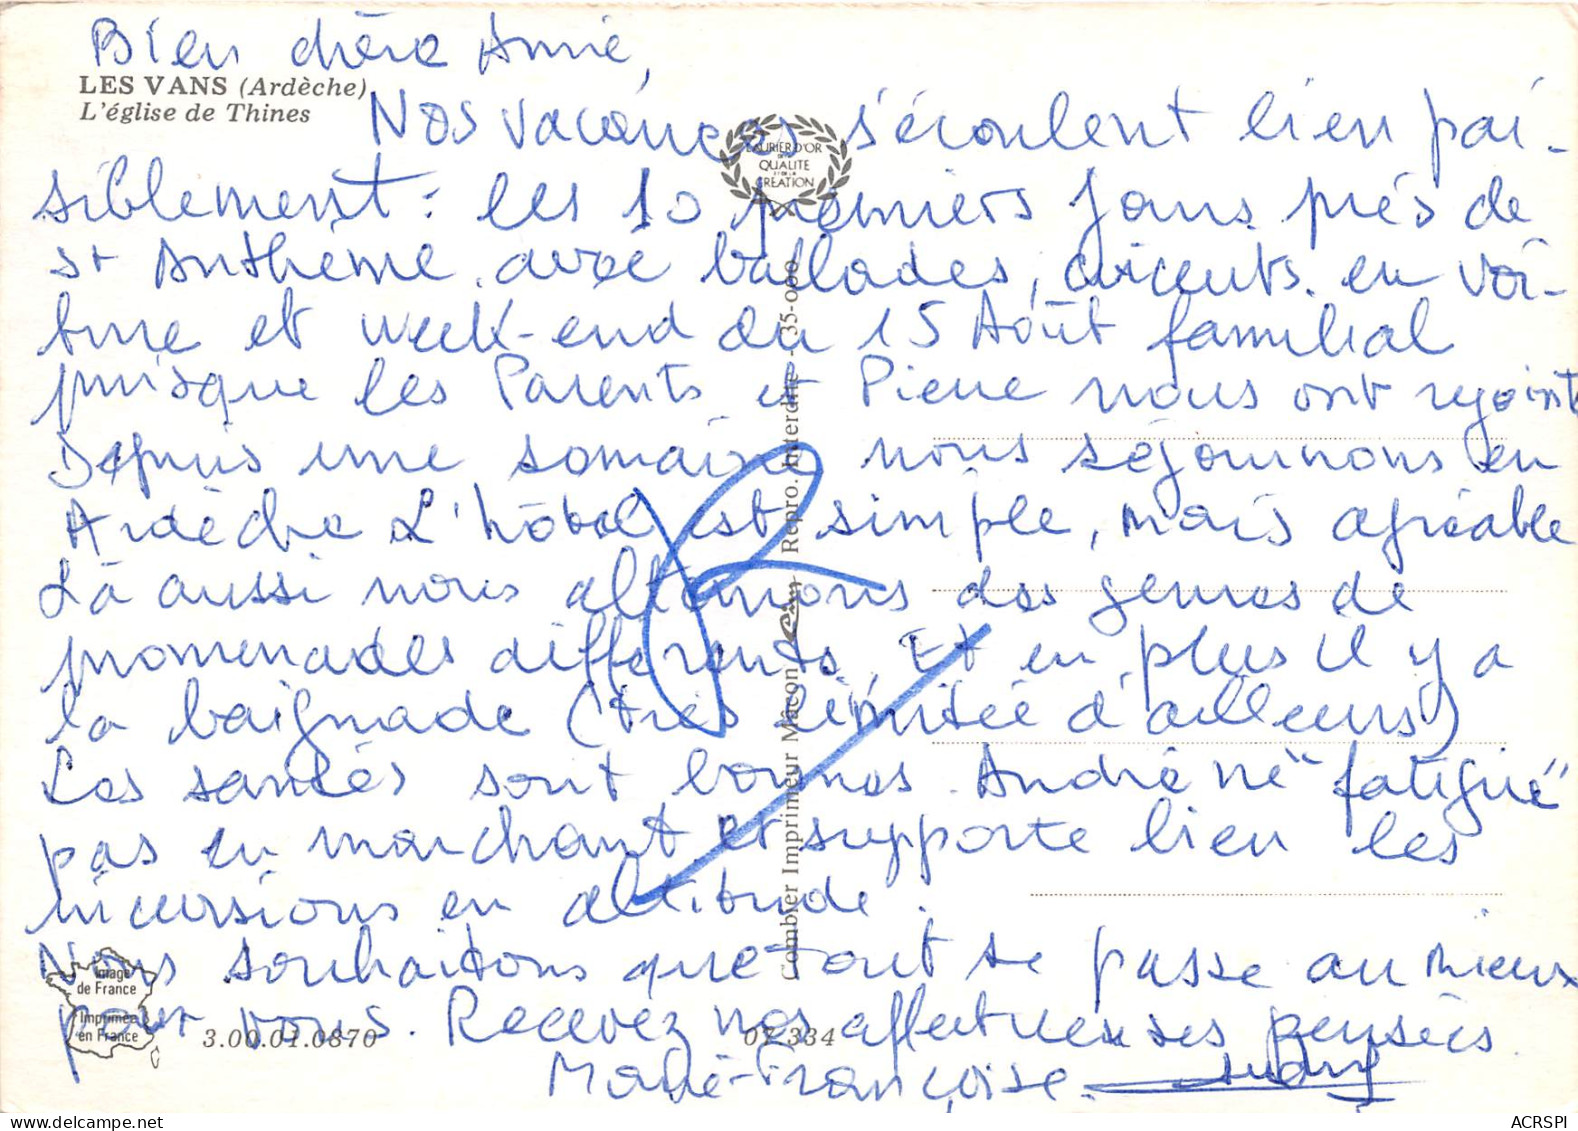 Bien chère Annie,
LES VANS (Ardèche)
L'église de Thines
Nos vacances s'écoulent bien pai-
siblement : les 10 premiers jours près de
St Anthème avec ballades, circuits en voi-
ture et week-end du 15 Août familial
puisque les Parents et Pierre nous ont rejoint
Depuis une semaine nous séjournons en
Ardèche L'hôtel est simple, mais agréable
Là aussi nous alternons des genres de
promenades différents. Et en plus il y a
la baignade (très limitée d'ailleurs)
Les santés sont bonnes. André né "fatigué"
pas en marchant et supporte bien les
incursions en altitude.
Nous souhaitons que tout se passe au mieux
pour vous. Recevez nos affectueuses pensées
Marie-Françoise.
LAURIER D'OR
DE LA
QUALITÉ
ET DE LA
CRÉATION
Combier Imprimeur Macon Cim Repro. Interdite - 35-000
Image
de France
Imprimée
en France
3.00.01.0870
07 334
ACRSPI